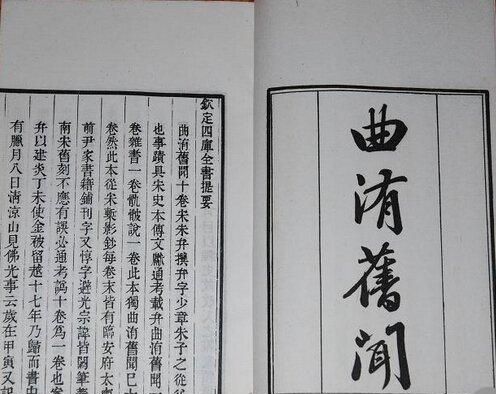 曲洧舊聞
欽定四庫全書提要
曲洧舊聞十卷朱弁撰弁字少章朱子之從
也事蹟具宋史本傳文獻通考載弁曲洧舊聞
卷雜書一卷骫骳說一卷此本獨曲洧舊聞已十
卷然此本從宋槧影鈔每卷末皆有臨安府太
前尹家書籍鋪刊字又惇字避光宗諱皆闕筆
南宋舊刻不應有誤必通考譌十卷為一卷也案
弁以建炎丁未使金被留越十七年乃歸而書中
有臘月八日清涼山見佛光事云歲在甲寅又記